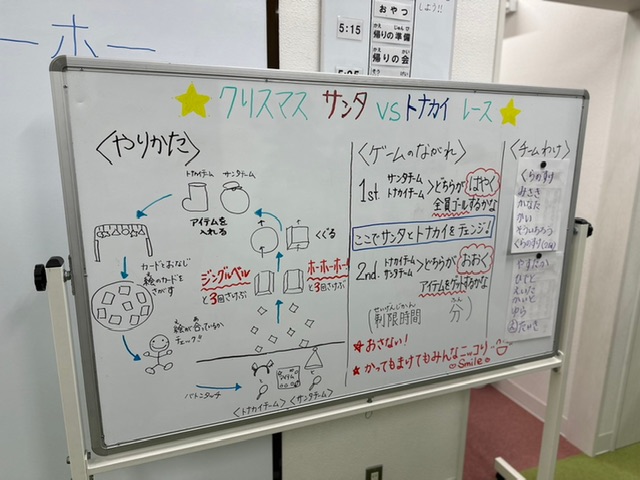 ーホー
しよう!!
おやつ
5:15
かえ じゅんび
帰りの準備
かえ かい
帰りの会
☆クリスマス サンタ VS トナカイ レース☆
〈やりかた〉
トナカイチーム
サンタチーム
アイテムを
入れる
カードとおなじ
絵のカードを
さがす
絵が合っているか
チェック!!
くぐる
ジングルベル
と3回さけぶ
ホーホーホー!
と3回さけぶ
バトンタッチ
〈トナカイチーム〉
〈サンタチーム〉
〈ゲームのながれ〉
1st.
サンタチーム
トナカイチーム
>どちらが はやく
全員ゴールするかな
ここでサンタとトナカイをチェンジ!
2nd.
トナカイチーム
サンタチーム
>どちらが おおく
アイテムをゲットするかな
せいげんじかん ふん
(制限時間 分)
☆おさない!
☆かってもまけてもみんなニッコリ
Smile
〈チームわけ〉
みさき
かなた
かい